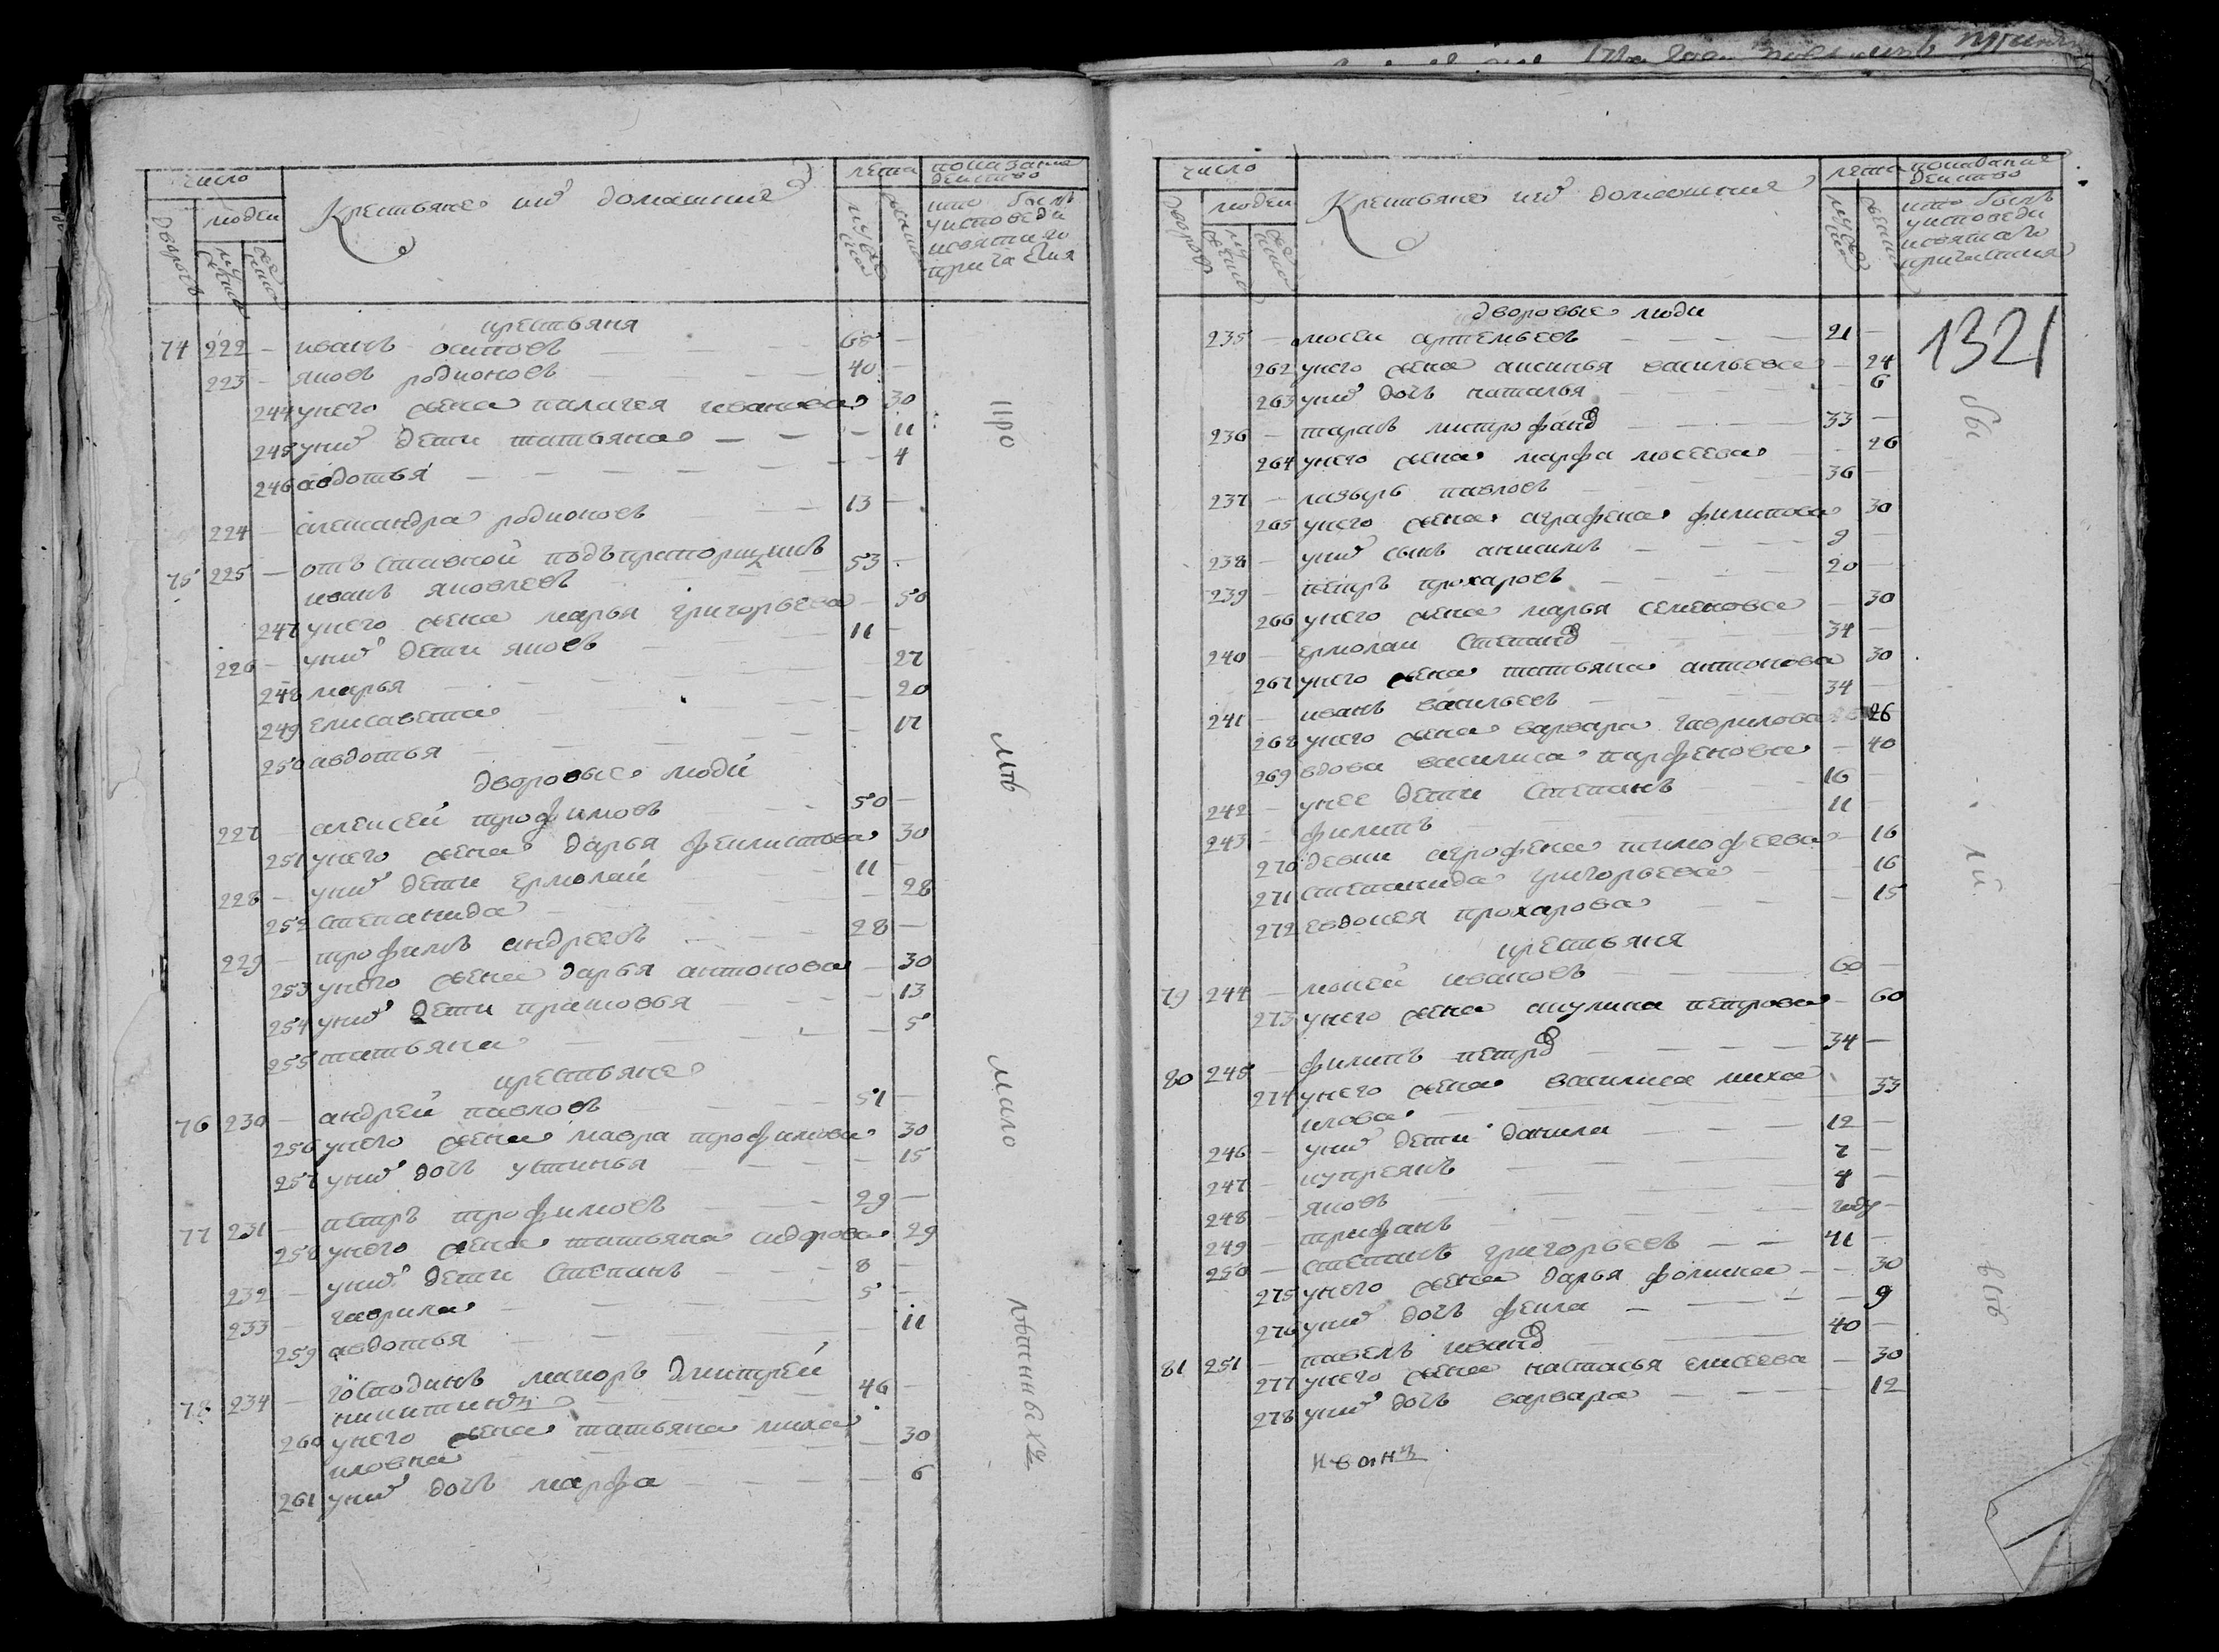 число
Крестьяне ихъ домашние
лета
показание
действо
дворовъ
людеи
мужеска
женска
мужеска
женска
кто былъ
уисповеди
исвятаго
причастия
крестьяня
74 222 — иванъ осиповъ — 68 —
223 — яковъ родионовъ — 40 —
244 унего жена пилагея иванова 30
245 унихъ дети татьяна — — — 11
246 авдотья — — 4
224 — александра родионовъ — 13 —
75 225 — отъставной подъпрапорщикъ
иванъ яковлевъ 53 —
247 унего жена марья григорьева — 50
226 — унихъ дети яковъ — 11 —
248 марья — — 27
249 елисавета — — 20
250 авдотья — — 17
дворовые люди
227 алексей трофимовъ — 50 —
251 унего жена дарья филипова 30
228 — унихъ дети ермолай — 11
252 степанида — — 28
229 — трофимъ андреевъ — 28 —
253 унего жена дарья антонова — 30
254 унихъ дети прасковья — — 13
255 татьяна — — 5
крестьяне
76 230 — андрей павловъ — 51 —
256 унего жена мавра трофимова 30
257 унихъ дочь устинья — — 15
77 231 — петръ трофимовъ — 29 —
258 унего жена татьяна сидорова 29
232 — унихъ дети степанъ — 8 —
233 — гаврила — 5 —
259 авдотья — — 11
78 234 — господинъ маиоръ дмитрей
никитинъ — 46 —
260 унего жена татьяна миха
иловна — — 30
261 унихъ дочь марфа — — 6
про
мъ
мало
число
Крестьяне ихъ домашния
лета
показание
действо
дворовъ
людеи
мужеска
женска
мужеска
женска
кто былъ
уисповеди
исвятаго
причастия
1321
дворовые люди
235 — мосеи артемьевъ — 21 —
262 унего жена аксинья васильева — 24
263 унихъ дочь наталья — 6
236 — тарасъ митрофановъ — 33 —
264 унего жена марфа мосеева — 26
237 — лазырь павловъ — 36 —
265 унего жена аграфена филипова 30
238 — унихъ сынъ анисимъ — 9 —
239 — петръ прохаровъ — 20 —
266 унего жена марья семенова — 30
240 — ермолаи степановъ — 34 —
267 унего жена татьяна антонова 30
241 — иванъ васильевъ — 34
268 унего жена варвара гаврилова 26
269 вдова василиса парфенова — 40
242 — унее дети степанъ — 16 —
243 — филипъ — 11 —
270 девки агрофена тимофеева — 16
271 степанида григорьева — 16
272 евдокея прохарова — — 15
крестьяня
79 244 — мокей ивановъ — 60 —
273 унего жена акулина петрова — 60
80 245 — филипъ петровъ — 34 —
274 унего жена василиса миха
илова — 33
246 — унихъ дети данила — 12 —
247 — купреянъ — 7 —
248 — яковъ — 4 —
249 — трифанъ — году —
250 — степанъ григорьевъ — — 41 —
275 унего жена дарья фомина — — 30
276 унихъ дочь фекла — — 9
81 251 — павелъ ивановъ — 40 —
277 унего жена настасья елисеева — 30
278 унихъ дочь варвара — — 12
бы